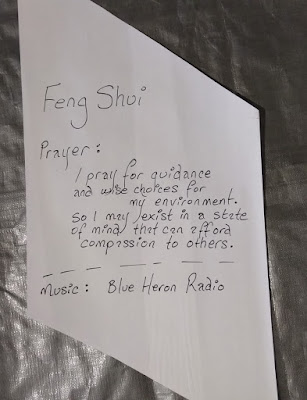 Feng Shui
Prayer:
I pray for guidance
and wise choices for
my environment.
So I may exist in a state
of mind that can afford
compassion to others.
Music: Blue Heron Radio